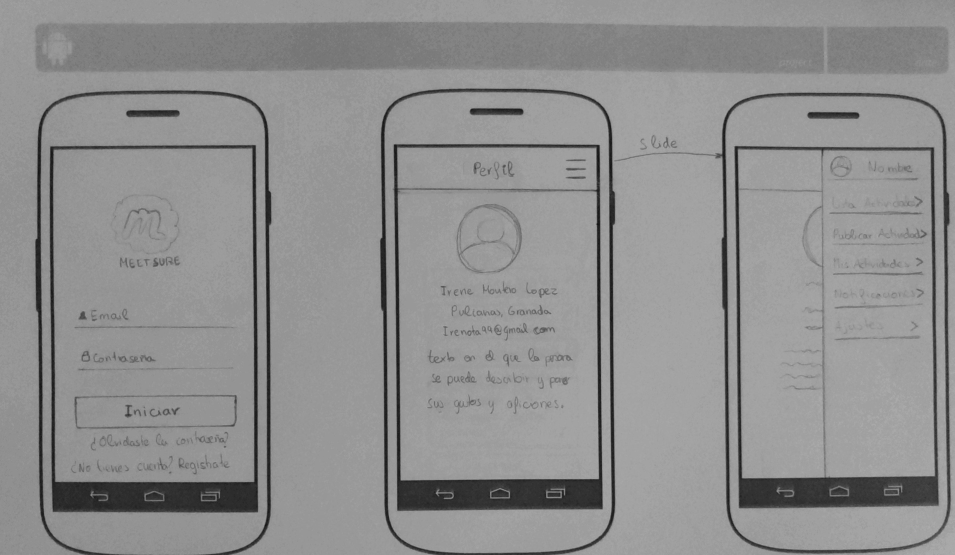 M
MEETSURE
Email
Contraseña
Iniciar
¿Olvidaste la contraseña?
¿No tienes cuenta? Registrate
Perfil
Irene Lopez
Pulianas, Granada
Irenota99@gmail.com
texto en el que la
se puede describir y
sus gustos y aficiones.
slide
Nombre
Lista Actividades >
Publicar Actividad >
Mis Actividades >
Notificaciones >
Ajustes >